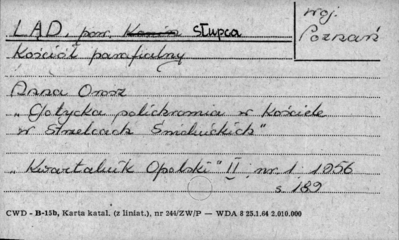 LĄD, pow. Konin Słupca
woj. Poznań
Kościół parafialny
Anna Orosz
„Gotycka polichromia w Kościele
w Strzelcach Świdnickich"
„Kwartalnik Opolski" II nr. 1 1956
s. 189
CWD - B-15b, Karta katal. (z liniat.), nr 244/ZW/P — WDA 8 25.1.64 2.010.000